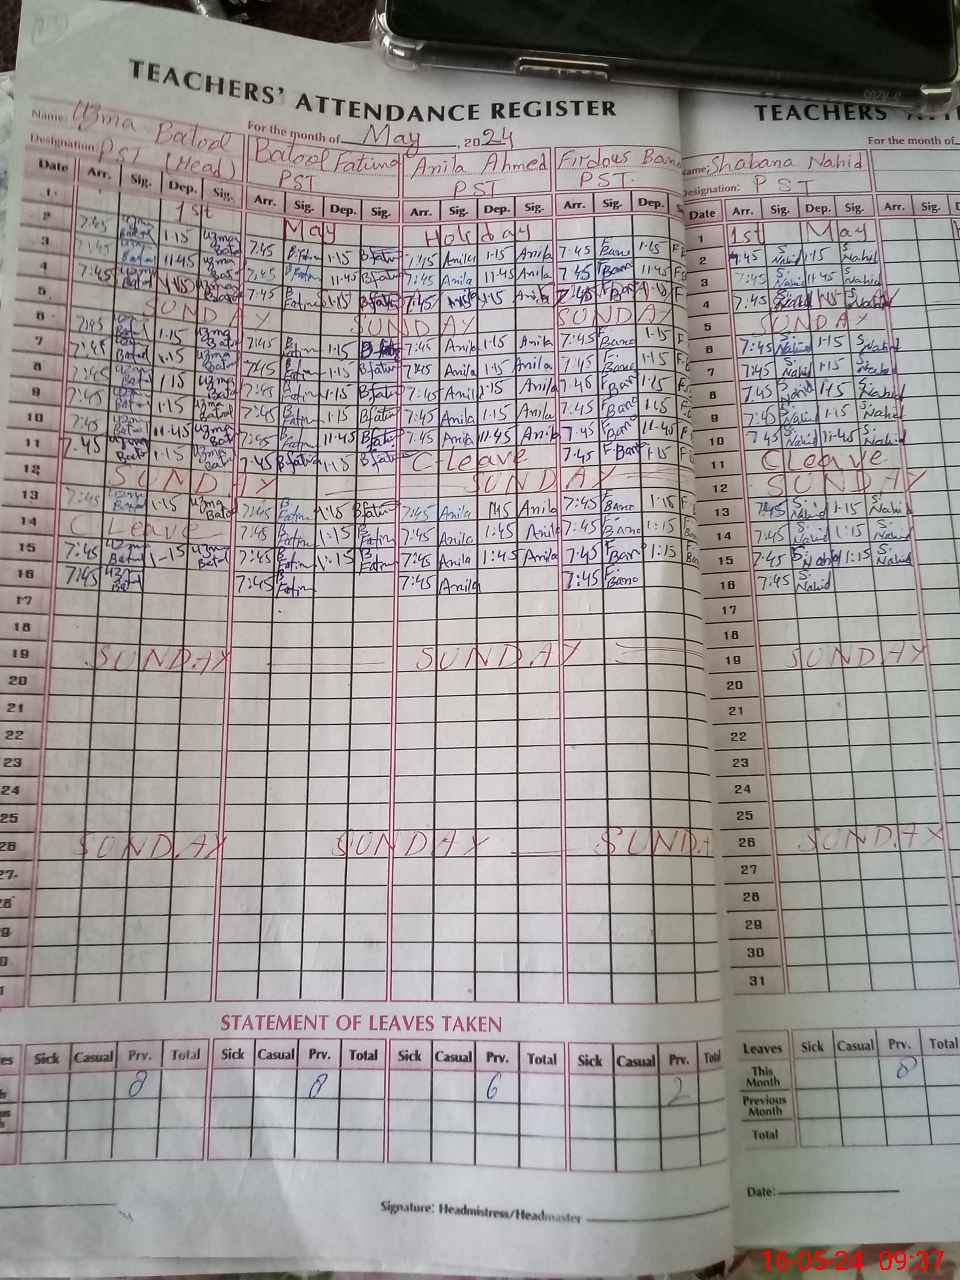 TEACHERS' ATTENDANCE REGISTER
Name: Uzma Batool
For the month of May, 2024
Designation: PST (Head)
Batool Fatima
PST
Anila Ahmed
PST
Firdous Bano
PST.
Date Arr. Sig. Dep. Sig. Arr. Sig. Dep. Sig. Arr. Sig. Dep. Sig. Arr. Sig. Dep. S
1 1st May Holiday
2 7:45 1:15 Uzma Batol 7:45 B Fatim 1:15 B fatim 7:45 Anila 1:15 Anila 7:45 F Bano 1:15 F
3 7:45 11:45 7:45 11:45 7:45 Anila 11:45 Anila 7:45 F Bano 11:45
4 7:45 7:45 B Fatim 1:15 7:45 Anila 1:15 Anila 7:45 F Bano F
5 SUNDAY SUNDAY SUNDAY
6 7:45 1:15 Uzma Batol 7:45 B Fatim 1:15 7:45 Anila 1:15 Anila 7:45 F Bano 1:15
7 7:45 Batol 1:15 Uzma Batol 7:45 B Fatim 1:15 B fatim 7:45 Anila 1:15 Anila 7:45 F. Bano 1:15
8 7:45 1:15 Uzma Batol 7:45 B Fatim 1:15 B fatim 7:45 Anila 1:15 Anila 7:45 F Bano 1:15
9 7:45 1:15 Uzma Batol 7:45 B Fatim 1:15 B fatim 7:45 Anila 1:15 Anila 7:45 F Bano 1:15
10 7:45 11:45 Uzma Bat 7:45 B Fatim 11:45 B fatim 7:45 Anila 11:45 Anila 7:45 F Bano 11:45
11 7:45 Uzma Batol 1:15 Uzma Bat 7:45 B fatim 1:15 B fatim C-Leave 7:45 F-Bano 1:15 F
12 SUNDAY SUNDAY
13 7:45 1:15 Uzma Batol 7:45 B Fatim 1:15 B Fatim 7:45 Anila 1:15 Anila 7:45 F Bano 1:15 F
14 C Leave 7:45 B Fatim 1:15 B Fatim 7:45 Anila 1:45 Anila 7:45 F. Bano 1:15 F. Bano
15 7:45 Uzma Batol 1:15 Uzma Batol 7:45 B Fatim 1:15 B Fatim 7:45 Anila 1:45 Anila 7:45 F Bano 1:15 F Bano
16 7:45 Uzma Bat 7:45 B Fatim 7:45 Anila 7:45 F. Bano
17
18
19 SUNDAY SUNDAY
20
21
22
23
24
25
26 SUNDAY SUNDAY SUNDA
27
STATEMENT OF LEAVES TAKEN
Sick Casual Prv. Total Sick Casual Prv. Total Sick Casual Prv. Total Sick Casual Prv. Total
8 8 6 2
Signature: Headmistress/Headmaster
TEACHERS'
For the month of
Shabana Nahid
Designation: PST
Date Arr. Sig. Dep. Sig. Arr. Sig. D
1 1st May H
2 7:45 S. Nahid 1:15 S Nahid
3 7:45 S. Nahid 11:45 S Nahid
4 7:45 S. S. Nahid
5 SUNDAY
6 7:45 S. Nahid 1:15 S Nahid
7 7:45 S. Nahid 1:15 S.
8 7:45 S. Nahid 1:15 S. Nahid
9 7:45 S. Nahid 1:15 S. Nahid
10 7:45 S. Nahid 11:45 S. Nahid
11 C Leave
12 SUNDAY
13 7:45 S. Nahid 1:15 S. Nahid
14 7:45 S. Nahid 1:15 S. Nahid
15 7:45 S. Nahid 1:15 S. Nahid
16 7:45 S. Nahid
17
18
19 SUNDAY
20
21
22
23
24
25
26 SUNDAY
27
28
29
30
31
Leaves Sick Casual Prv. Total
This Month 8
Previous Month
Total
Date:
16-05-24 09:37